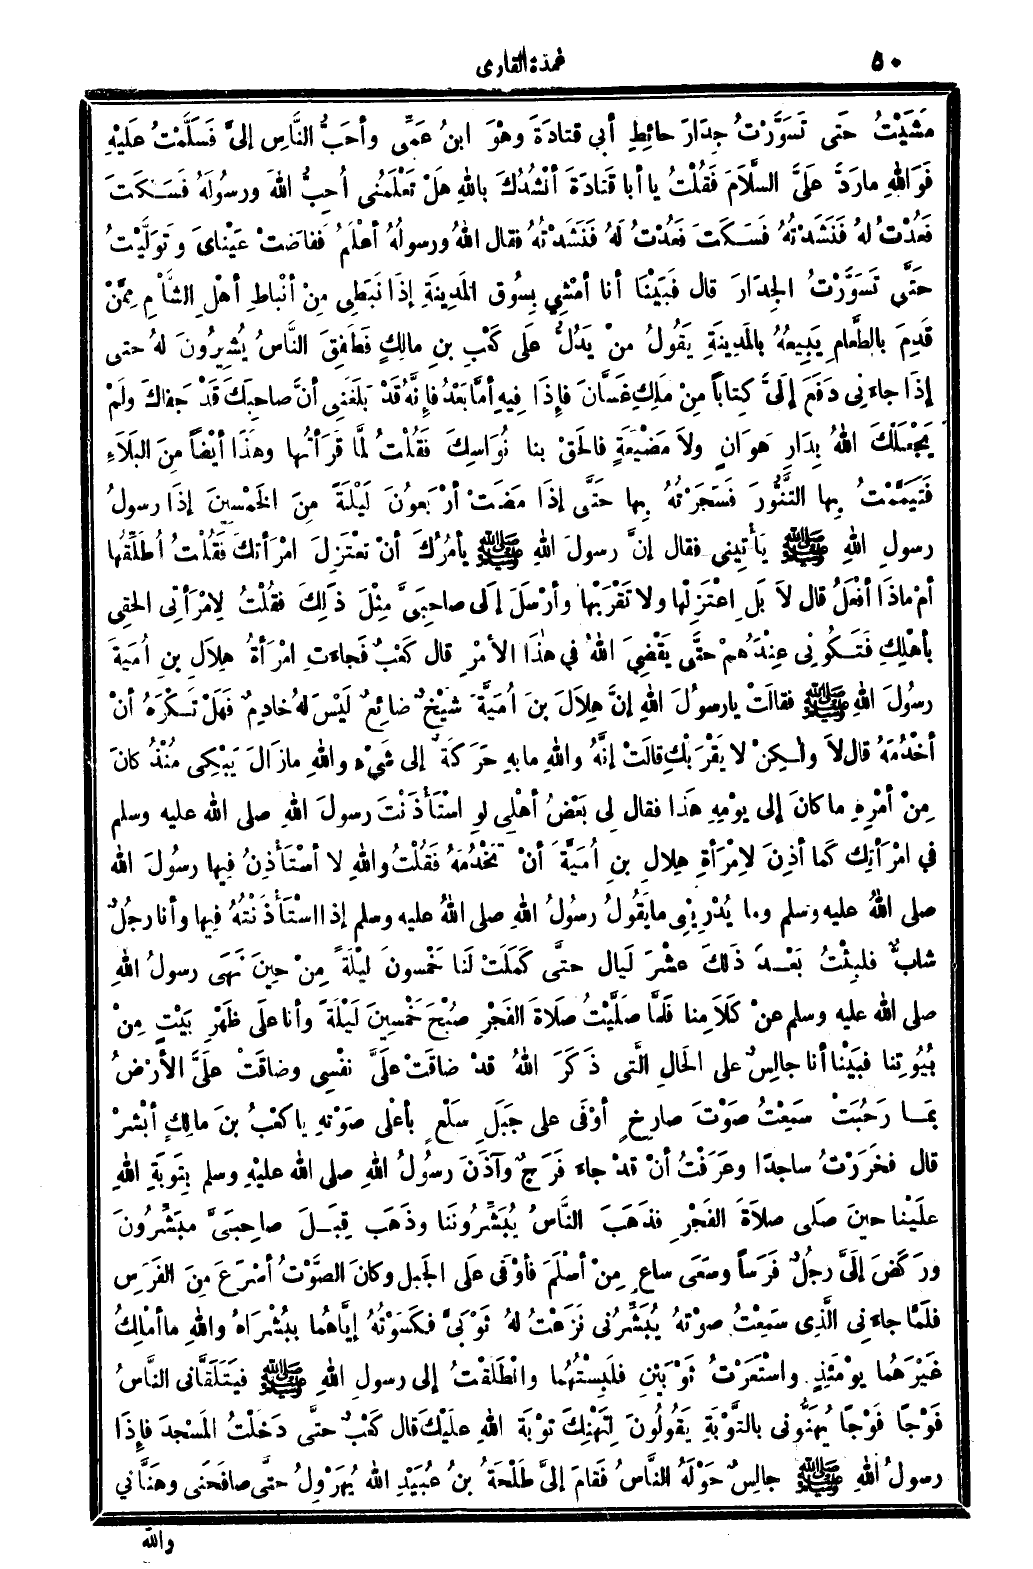 ٥٠ عمدة القارى
مَشَيْتُ حَتى تَسَوَّرْتُ جِدَارَ حائِطِ أبي قتادَةَ وهْوَ ابنُ عَمِّى وأحَبُّ النَّاسِ إلىَّ فَسَلَّمْتُ عَليْهِ
فَوَاللهِ مارَدَّ علَىَّ السَّلاَمَ فَقُلْتُ يا أبا قَتادَةَ أنْشُدُكَ باللهِ هَلْ تَعْلَمُنى أُحِبُّ اللهَ ورسُولَهُ فَسَكَتَ
فَعُدْتُ لهُ فَنَشَدْتُهُ فَسَكَتَ فَعُدْتُ لَهُ فَنَشَدْتُهُ فقال اللهُ ورسولُهُ أعْلَمُ ففاضَتْ عَيْناىَ وتَوَلَّيْتُ
حَتَّى تَسَوَّرْتُ الجِدَارَ قال فَبَيْنْا أنا أمْشِي بِسُوقِ المَدِينَةِ إذَا نَبَطِى مِنْ أنْباطِ أهْلِ الشَّأْمِ مِمَّنْ
قَدِمَ بالطَّعامِ يَبِيعُهُ بالمَدِينَةِ يَقُولُ منْ يَدُلُّ على كَعْبِ بنِ مالِكٍ فَطَفِقَ النَّاسُ يُشِيرُونَ لهُ حتى
إذَا جاءَنِى دَفَعَ إلَىَّ كِتاباً مِنْ مَلِكِ غَسَّانَ فإذَا فِيهِ أمَّا بَعْدُ فإنَّهُ قَدْ بَلغَنى أنَّ صاحِبَكَ قَدْ جَفاكَ ولَمْ
يَجْعَلْكَ اللهُ بِدَارِ هَوَانٍ ولاَ مَضْيَعَةٍ فالحَقْ بنا نُوَاسِكَ فَقُلْتُ لمَّا قَرَأْتُها وهذَا أيْضاً مِنَ البَلاَءِ
فَتَيَمَّمْتُ بِها التَّنُّورَ فَسَجَرْتُهُ بِها حَتَّى إذَا مَضَتْ أرْبَعونَ لَيْلَةً مِنَ الخَمْسِينَ إذَا رسولُ
رسولِ اللهِ ﷺ يَأْتِينى فقال إنَّ رسولَ اللهِ ﷺ يأمُرُكَ أنْ تعْتَزِلَ امْرَأتَكَ فَقُلْتُ أُطَلِّقُها
أمْ ماذَا أفْعَلُ قال لاَ بَلِ اعْتَزِلْها ولا تَقْرَبْها وأرْسَلَ إلَى صاحِبَىَّ مِثْلَ ذَلِكَ فقُلْتُ لاِمْرَأتِى الحَقِى
بأهْلِكِ فَتَكُونِى عِنْدَهُمْ حتَّى يَقْضِيَ اللهُ في هٰذَا الأمْرِ قال كَعْبٌ فَجاءَتِ امْرَأةُ هِلاَلِ بنِ أُمَيَةَ
رسُولَ اللهِ ﷺ فقالَتْ يارسولَ اللهِ إنَّ هِلاَلَ بنَ أُمَيَةَ شَيْخٌ ضائِعٌ لَيْسَ لهُ خادِمٌ فَهَلْ تَكْرَهُ أنْ
أخْدُمَهُ قال لاَ ولٰكِنْ لا يَقْرَبْكِ قالَتْ إنَّهُ واللهِ مابهِ حَرَكَةٌ إلى شَيْءٍ واللهِ مازَالَ يَبْكِى مُنْذُ كانَ
مِنْ أمْرِهِ ما كانَ إلى يوْمِهِ هَذَا فقال لِى بَعْضُ أهْلِى لوِ اسْتَأْذَنْتَ رسولَ اللهِ صلى الله عليه وسلم
في امْرَأتِكَ كَما أذِنَ لاِمْرَأةِ هِلالِ بنِ أُمَيَّةَ أنْ تَخْدُمَهُ فَقُلْتُ واللهِ لا أسْتَأْذِنُ فِيها رسُولَ الله
صلى اللهُ عليه وسلم وما يُدْرِينِى مايَقُولُ رسُولُ اللهِ صلى اللهُ عليه وسلم إذا اسْتَأْذَنْتُهُ فِيها وأنا رجُلٌ
شابٌّ فلبِثْتُ بَعْدَ ذَلكَ عشْرَ لَيال حتَّى كَمَلَتْ لَنا خَمْسونَ لَيْلَةً مِنْ حِينَ نَهَى رسولُ اللهِ
صلى الله عليه وسلم عنْ كَلاَمِنا فَلَمَّا صَلَّيْتُ صلاَةَ الفَجْرِ صُبْحَ خَمْسِينَ لَيْلَةً وأنا علَى ظَهْرِ بَيْتٍ مِنْ
بُيُوتِنا فبَيْنْا أنا جالِسٌ على الحَالِ الَّتى ذَكَرَ اللهُ قدْ ضاقَتْ عَلَىَّ نفْسِى وضاقَتْ علَىَّ الأرْضُ
بمَا رَحُبَتْ سَمِعْتُ صَوْتَ صارِخٍ أوْفَى على جَبَلِ سَلْعٍ بأعْلى صَوْتهِ يا كَعْبُ بنَ مالِكٍ أبْشِرْ
قال فخَرَرْتُ ساجدًا وعَرَفْتُ أنْ قدْ جاء فَرَجٌ وآذَنَ رسُولُ اللهِ صلى الله عليْهِ وسلم بِتَوبَةِ اللهِ
علَيْنا حينَ صَلَى صلاَةَ الفَجْرِ فذهَبَ النَّاسُ يُبَشِّرُونَنا وذهَبَ قِبَلَ صاحِبَىَّ مبَشِّرُونَ
ورَكَضَ إلَىَّ رجُلٌ فَرَساً وسَعَى ساعٍ مِنْ أسْلَمَ فأوْفَى علَى الجَبلِ وكانَ الصَّوْتُ أسْرَعَ مِنَ الفَرَسِ
فلَمَّا جاءَنِى الَّذِى سَمِعْتُ صوْتهُ يُبَشِّرُنى نَزَعْتُ لهُ ثَوْبَىَّ فَكَسَوْتُهُ إيَّاهُما ببُشْرَاهُ واللهِ ما أمْلِكُ
غَيْرَهُما يوْمَئِذٍ واسْتَعَرْتُ ثَوْبَيْنِ فلَبِسْتُهُما وانْطَلَقْتُ إلى رسولِ اللهِ ﷺ فيَتَلَقَّانى النَّاسُ
فَوْجًا فَوْجًا يُهَنُّونِى بالتَّوْبَةِ يَقُولُونَ لِتَهْنِكَ توْبَةُ اللهِ علَيْكَ قال كَعْبٌ حتَّى دَخَلْتُ المَسْجدَ فإذَا
رسولُ اللهِ ﷺ جالِسٌ حَوْلَهُ النَّاسُ فَقامَ إلىَّ طَلْحَةُ بنُ عُبَيْدِ الله يُهَرْوِلُ حتَّى صافَحَنى وهَنَّأنِي
والله